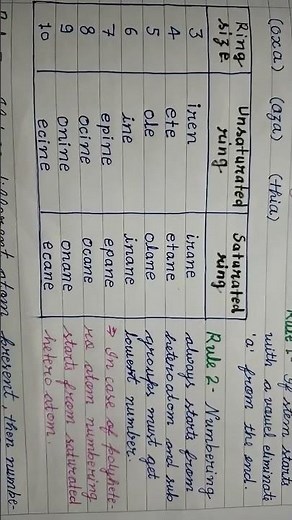 (oxa) (aza) (thia)
Rule 1- If stem starts
with a vowel eliminate
'a' from the end.
Ring size Unsaturated ring Saturated ring
3 iren irane
4 ete etane
5 ole olane
6 ine inane
7 epine epane
8 ocine ocane
9 onine onane
10 ecine ecane
Rule 2- Numbering
always starts from
heteroatom and sub
groups must get
lowest number.
⇒ In case of polyhete-
ro atom numbering
starts from saturated
hetero atom.
different atom present, then numbe-